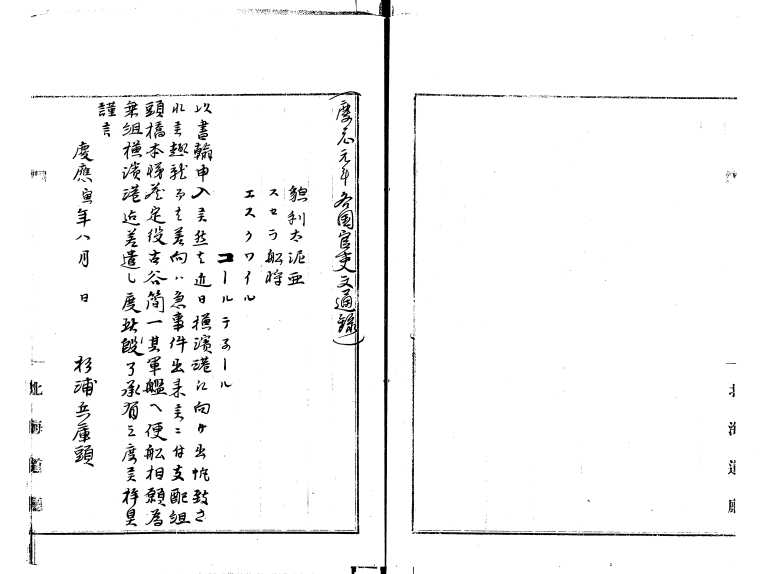 (慶応元年各国官吏文通録)
貌利太泥亜
スセラ船将
エスクワイル
コールテネール
以書翰申入候然者近日横濱港江向ケ出帆致さ
れ候趣就而者差向ハ急事件出来候ニ付支配組
頭橋本悌蔵定役古谷簡一其軍艦ヘ便船相願為
乗組横濱港迄差遣し度此段了承有之度候拝具
謹言
慶應寅年八月 日
杉浦兵庫頭
北海道廳
北海道廳